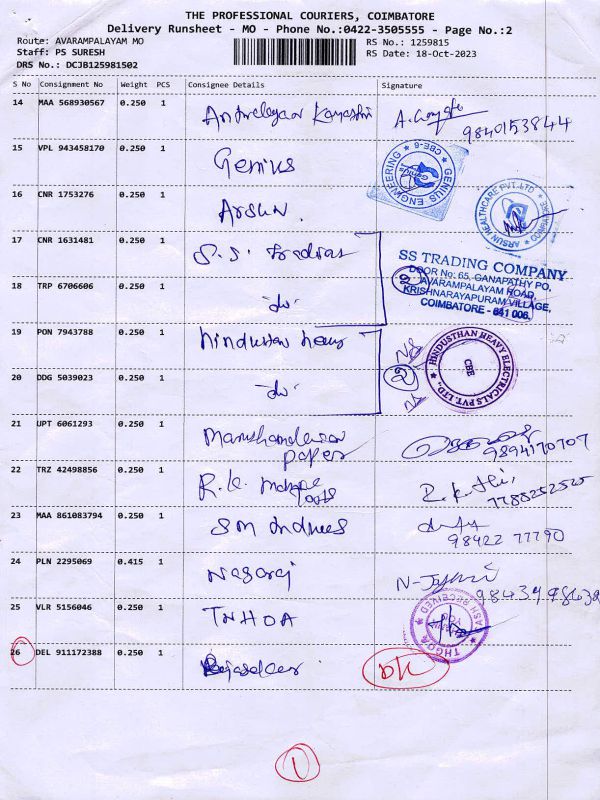 THE PROFESSIONAL COURIERS, COIMBATORE
Delivery Runsheet - MO - Phone No.:0422-3505555 - Page No.:2
Route: AVARAMPALAYAM MO
Staff: PS SURESH
DRS No.: DCJB125981502
RS No.: 1259815
RS Date: 18-Oct-2023
S No Consignment No Weight PCS Consignee Details Signature
14 MAA 568930567 0.250 1
9840153844
15 VPL 943458170 0.250 1 Genius
GENIUS ENGINEERING ★ CBE-6 ★
Genius
16 CNR 1753276 0.250 1 Arsun.
ARSUN HEALTHCARE PVT.LTD
17 CNR 1631481 0.250 1 S.S. Tradings
SS TRADING COMPANY
DOOR No: 65, GANAPATHY PO,
AVARAMPALAYAM ROAD,
KRISHNARAYAPURAM VILLAGE,
COIMBATORE - 641 006.
2
18 TRP 6706606 0.250 1 do
19 PON 7943788 0.250 1 hindustan heavy
HINDUSTHAN HEAVY ELECTRICALS PVT. LTD.,
CBE
NS
2
NS
20 DDG 5039023 0.250 1 do
21 UPT 6061293 0.250 1
paper
9894170707
22 TRZ 42498856 0.250 1 R.K.
23 MAA 861083794 0.250 1 SM
98422 77790
24 PLN 2295069 0.415 1 Nagaraj
25 VLR 5156046 0.250 1 TNHOA
THGOA
26 DEL 911172388 0.250 1
1